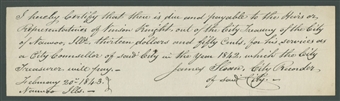 I hereby Certify that there is due and payable to the Heirs or
Representatives of Vinson Knight, out of the City Treasury of the City
of Nauvoo, Ills. thirteen dollars and fifty Cents, for his services as
a City Counsellor of said City in the year 1842, which the City
Treasurer will pay. James Sloan, City Recorder,
February 20th 1843. of said City.
Nauvoo Ills.